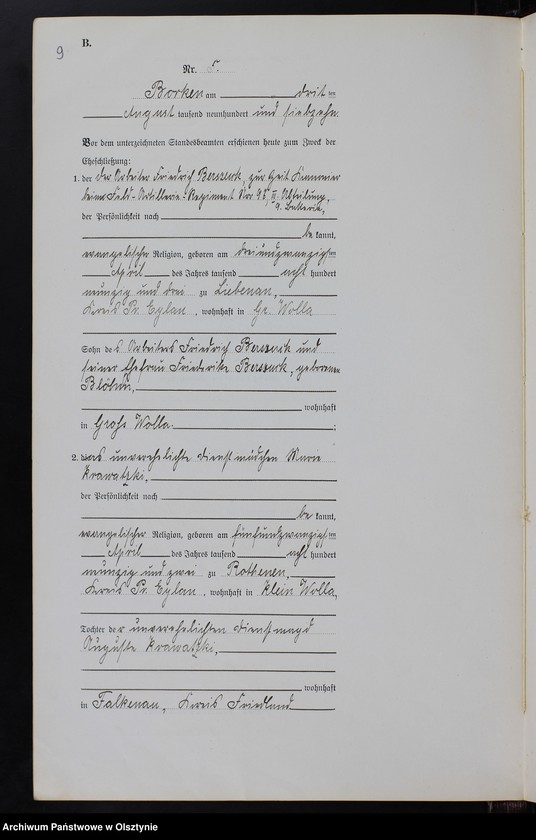 9
B.
Nr. 5.
Borken am dritten
August tausend neunhundert und siebzehn.
Vor dem unterzeichneten Standesbeamten erschienen heute zum Zweck der
Eheschließung:
1. der der Arbeiter Friedrich zur Zeit Kanonier
beim Feld-Artillerie-Regiment Nro II. Abteilung,
9. Batterie,
der Persönlichkeit nach
be kannt,
evangelischer Religion, geboren am dreiundzwanzigsten
April des Jahres tausend acht hundert
neunzig und drei zu Liebenau,
Kreis Pr. Eylau, wohnhaft in Gr. Wolla
Sohn des Arbeiters Friedrich und
seiner Ehefrau Friederike geborenen
wohnhaft
in Groß Wolla ;
2. das unverehelichte Dienstmädchen Marie
Krawatzki,
der Persönlichkeit nach
be kannt,
evangelischer Religion, geboren am fünfundzwanzigsten
April des Jahres tausend acht hundert
neunzig und zwei zu Rothenen,
Kreis Pr. Eylau, wohnhaft in Klein Wolla,
Tochter der unverehelichten Dienstmagd
Auguste Krawatzki,
wohnhaft
in Falkenau, Kreis Friedland
Archiwum Państwowe w Olsztynie